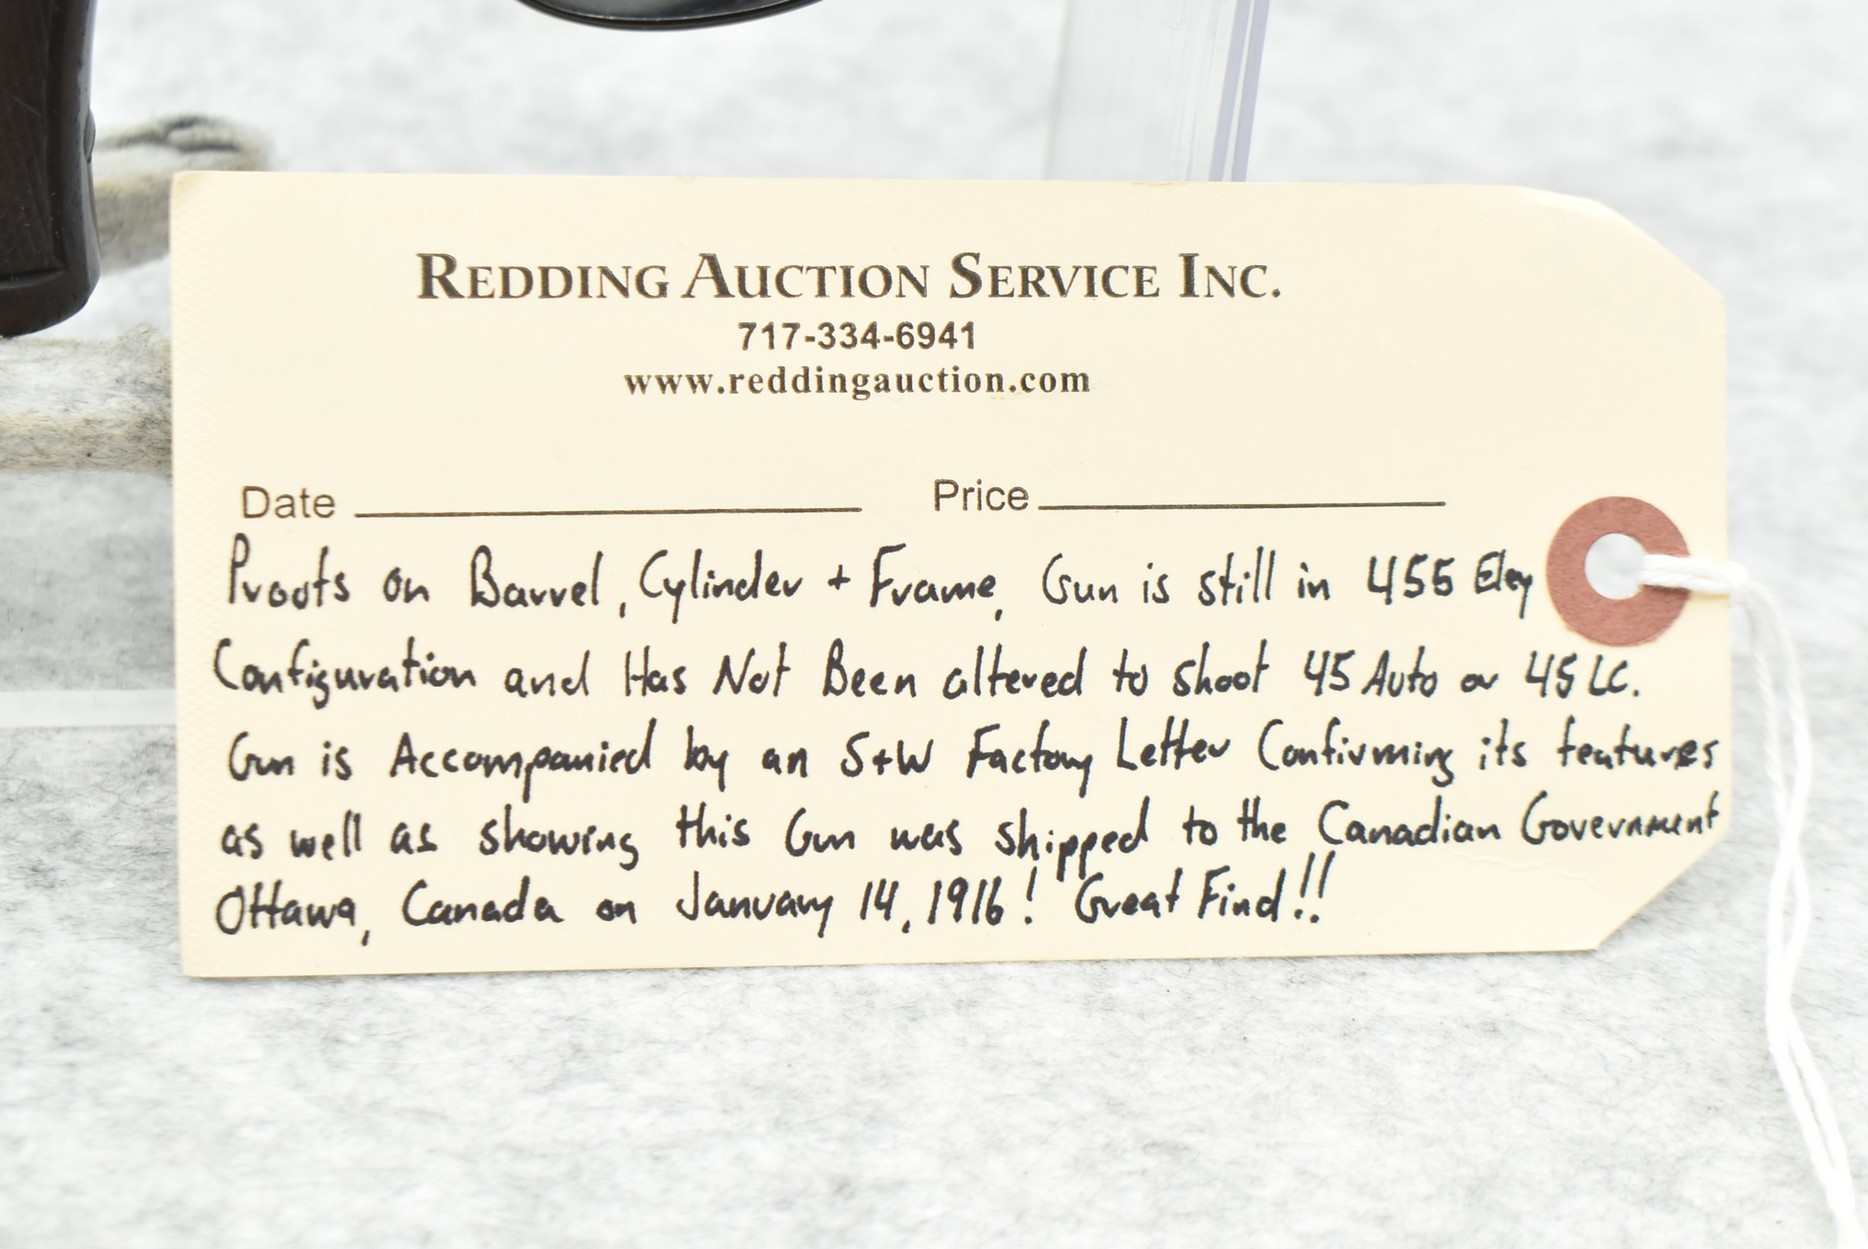 REDDING AUCTION SERVICE INC.
717-334-6941
www.reddingauction.com
Date Price
Proofs on Barrel, Cylinder + Frame, Gun is still in 455 Eley
Configuration and Has Not Been altered to shoot 45 Auto or 45 LC.
Gun is Accompanied by an S+W Factory Letter Confirming its features
as well as showing this Gun was shipped to the Canadian Government
Ottawa, Canada on January 14, 1916! Great Find!!